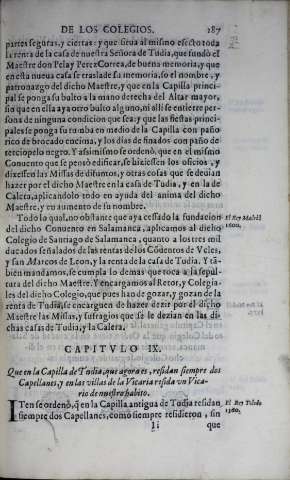 DE LOS COLEGIOS. 187
partes seguras, y ciertas: y que sirua al mismo efecto toda
la renta de la casa de nuestra Señora de Tudia, que fundò el
Maestre don Pelay Perez Correa, de buena memoria, y que
en esta nueua casa se traslade su memoria, so el nombre, y
patronazgo del dicho Maestre, y que en la Capilla princi-
pal se ponga su bulto a la mano derecha del Altar mayor,
sin que en ella aya otro bulto alguno, ni alli se entierre per-
sona de ninguna condicion que sea: y que las fiestas princi-
pales se ponga su tumba en medio de la Capilla con paño
rico de brocado encima, y los dias de finados con paño de
terciopelo negro. Y assimismo se ordenò, que en el mismo
Conuento que se pensò edificar, se hiziessen los oficios, y
dixessen las Missas de difuntos, y otras cosas que se deuian
hazer por el dicho Maestre en la casa de Tudia, y en la de
Calera, aplicandolo todo en ayuda del anima del dicho
Maestre, y en aumento de su nombre.
Todo lo qual, no obstante que aya cessado la fundacion
del dicho Conuento en Salamanca, aplicamos al dicho
Colegio de Santiago de Salamanca, quanto a los tres mil
ducados señalados de las rentas de los Cõuentos de Vcles,
y san Marcos de Leon, y la renta de la casa de Tudia. Y tã-
bien mandamos, se cumpla lo demas que toca a la sepul-
tura del dicho Maestre. Y encargamos al Retor, y Colegia-
les del dicho Colegio, que pues han de gozar, y gozan de la
renta de Tudia, se encarguen de hazer dezir por el dicho
Maestre las Missas, y sufragios que se le dezian en las di-
chas casas de Tudia, y la Calera.
El Rey Madrid
1600.
CAPITVLO IX.
Que en la Capilla de Tudia, que agora es, residan siempre dos
Capellanes, y en las villas de la Vicaria resida vn Vica-
rio de nuestro habito.
ITen se ordenò, q̃ en la Capilla antigua de Tudia residan
siempre dos Capellanes, como siempre residieron, sin
El Rey Toledo
1560.
Ii que